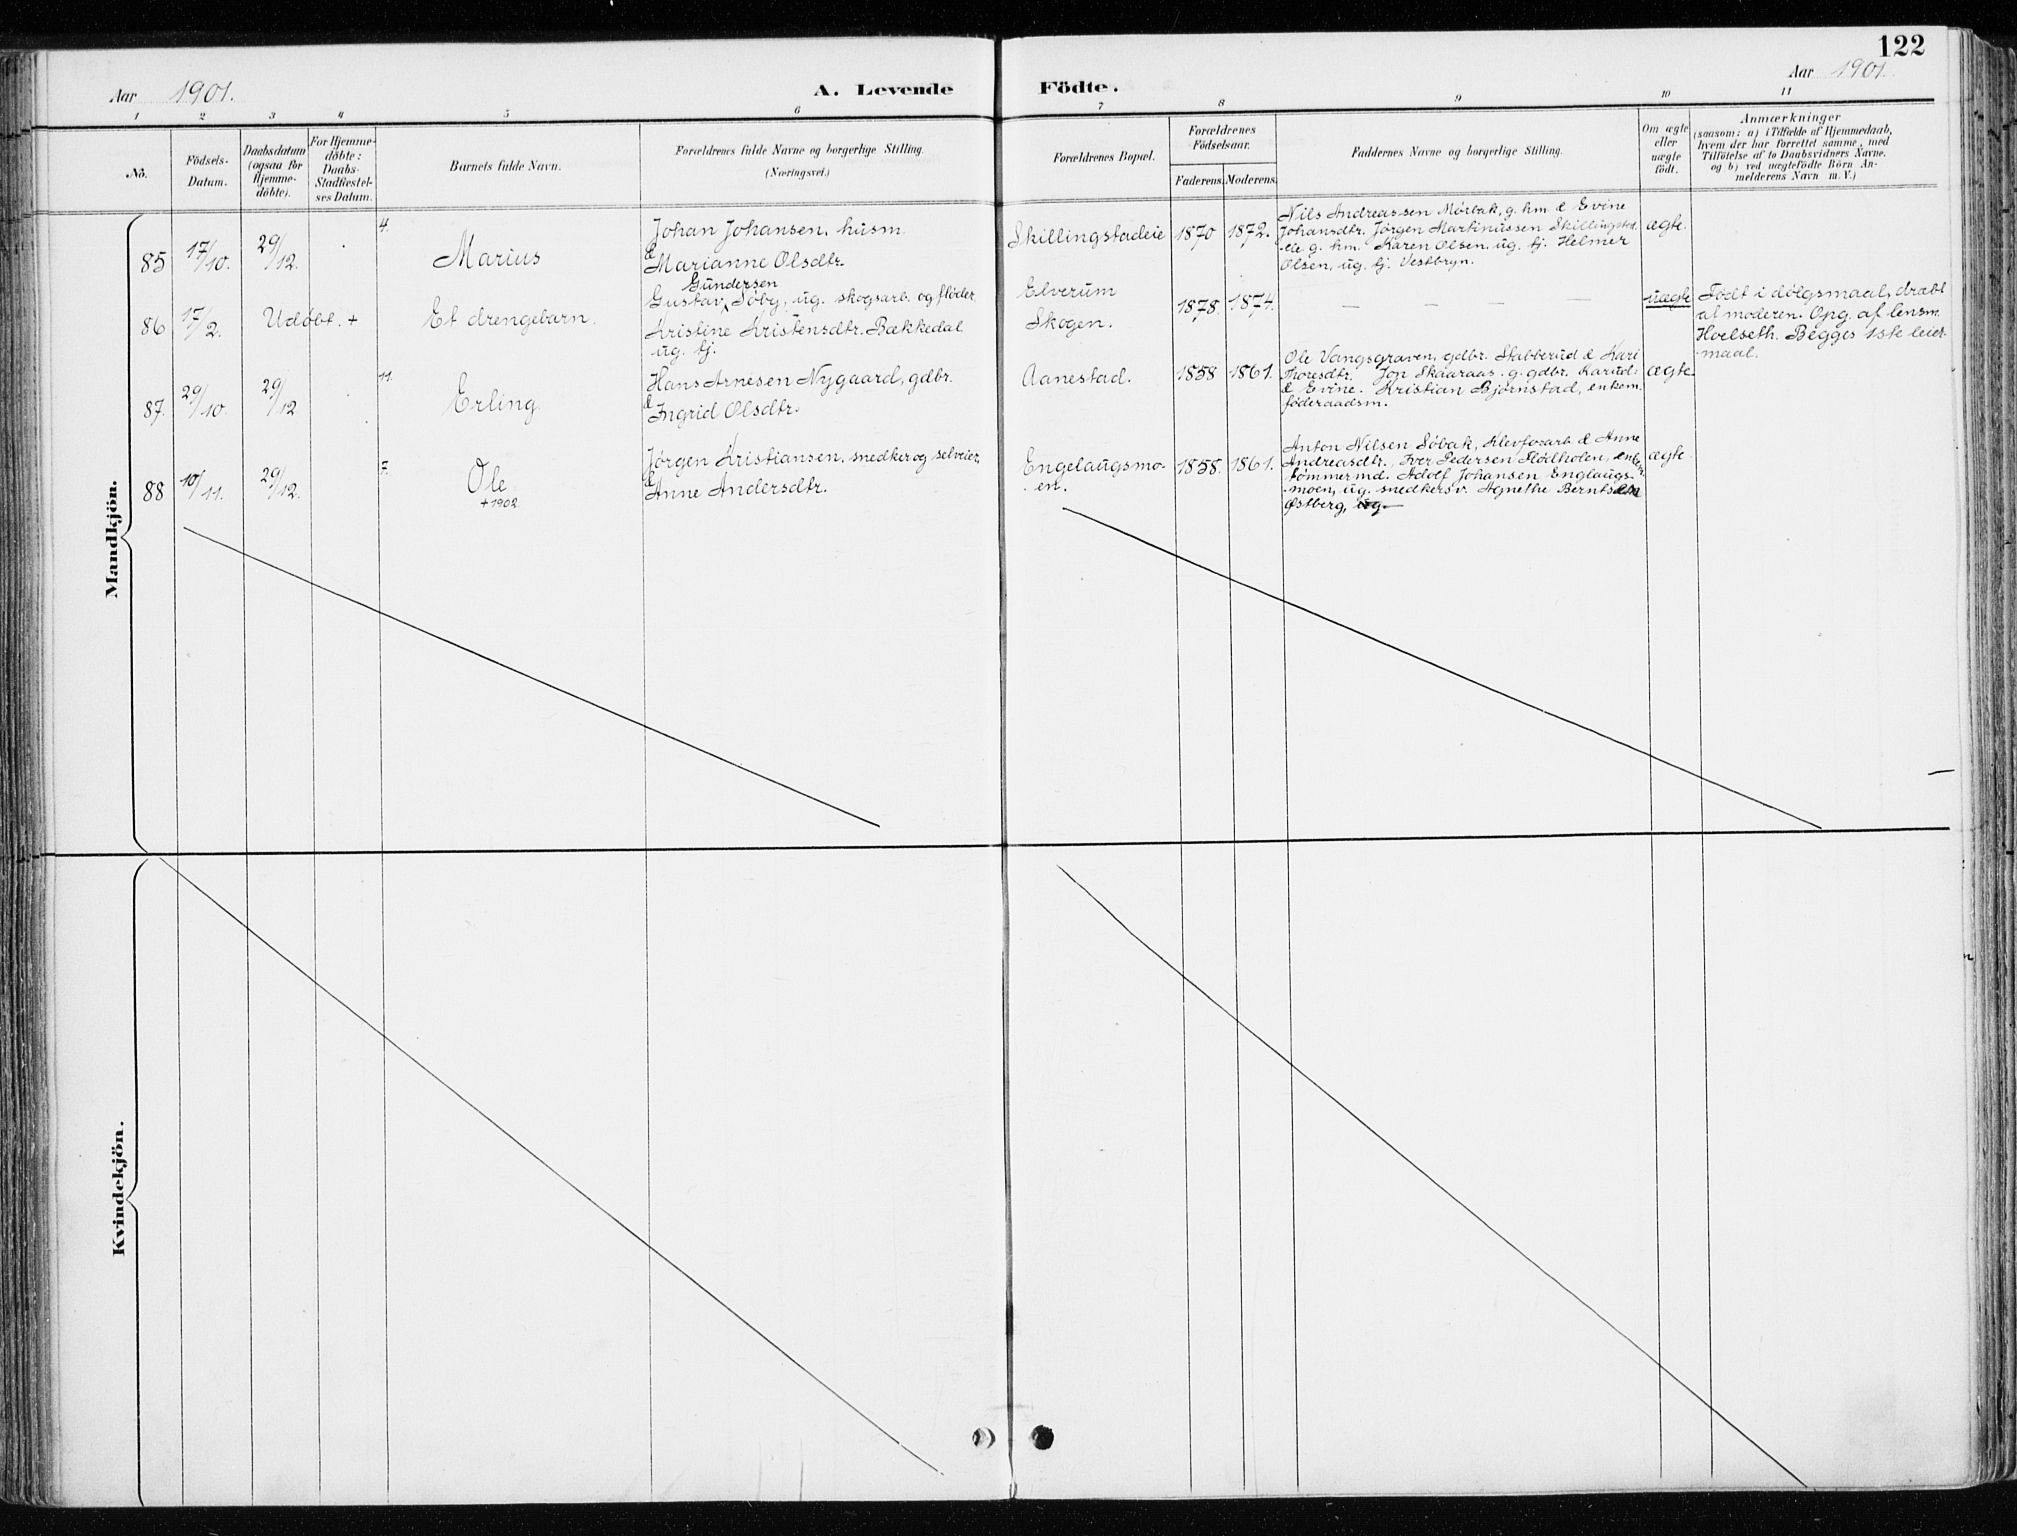 122
Aar 1901.
A. Levende Födte.
Aar 1901.
1 2 3 4 5 6 7 8 9 10 11
No.
Födsels-Datum.
Daabsdatum (ogsaa for Hjemme-döbte).
For Hjemme-döbte: Daabs-Stadfæstel-ses Datum.
Barnets fulde Navn.
Forældrenes fulde Navne og borgerlige Stilling.
(Næringsvei.)
Forældrenes Bopæl.
Forældrenes Födselsaar.
Faderens. Moderens.
Faddernes Navne og borgerlige Stilling.
Om ægte eller uægte födt.
Anmærkninger
(saasom: a) i Tilfælde af Hjemmedaab,
hvem der har forrettet samme, med
Tilföielse af to Daabsvidners Navne,
og b) ved uægtefödte Börn An-
melderens Navn m. V.)
Mandkjön.
85 17/10. 29/12. 4. Marius
Johan Johansen, husm.
& Marianne Olsdtr.
Skillingstadeie 1870 1872.
Nils Andreassen Mørbak, g. hm. & Evine
Johansdtr. Jörgen Martinussen Skillingstad-
eie g. hm. Karen Olsen, ug. tj. Helmer
Olsen, ug. tj. Vestbryn.
ægte.
86 17/2. Udöbt. + Et drengebarn.
Gundersen
Gustav Söby, ug. skogsarb. og fløder
Kristine Kristensdtr. Bækkedal
ug. tj.
Elverum
Skogen.
1878. 1874. — — — —
uægte
Födt i dölgsmaal, dræbt
af moderen. Opg. af lensm.
Hoelseth. Begges 1ste leier-
maal.
87. 29/10. 29/12 11. Erling
Hans Arnesen Nygaard, gdbr.
& Ingrid Olsdtr.
Aanestad. 1858 1861.
Ole Vangsgraven, gdbr. Stabberud & Kari
Thoresdtr. Jon Skaaraas g. gdbr. Karud
& Evine. Kristian Bjørnstad, enkem.
föderaadsm.
ægte.
88 10/11. 29/12. 7. Ole
+ 1902
Jørgen Kristiansen, snedker og selveier
& Anne Andersdtr.
Engelaugsmo-
en. 1858. 1861.
Anton Nilsen Løbak, Klevfosarb. & Anne
Andreasdtr., Iver Pedersen Flödholen, enkem.
tömmermd. Adolf Johansen Englaugs-
moen, ug. snedkersv. Agnethe Berntsen
Østberg, ug.
ægte.
Kvindekjön.